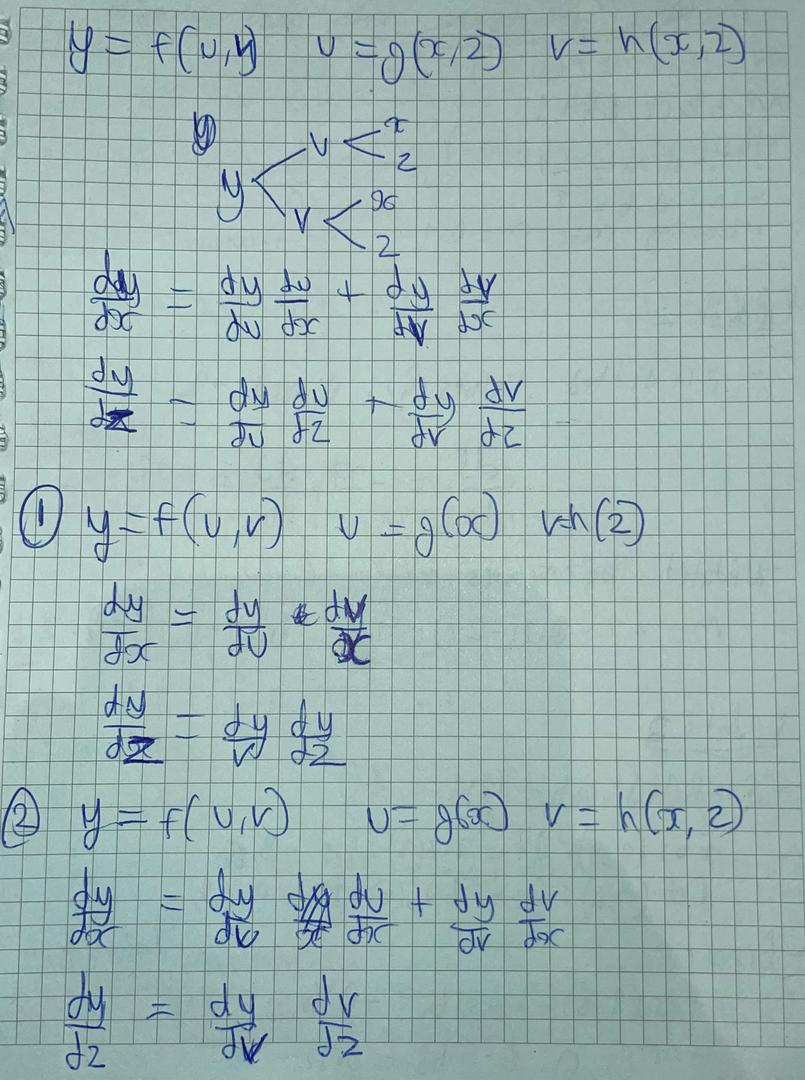 y = f(u,v) u = g(x,z) v = h(x,z)
u < x
z
y <
v < x
z
dy/dx = dy/du du/dx + dy/dv dv/dx
dy/dz = dy/du du/dz + dy/dv dv/dz
① y = f(u,v) u = g(x) v=h(z)
dy/dx = dy/du du/dx
dy/dz = dy/v dy/dz
② y = f(u,v) u = g(x) v = h(x,z)
dy/dx = dy/du du/dx + dy/dv dv/dx
dy/dz = dy/dv dv/dz